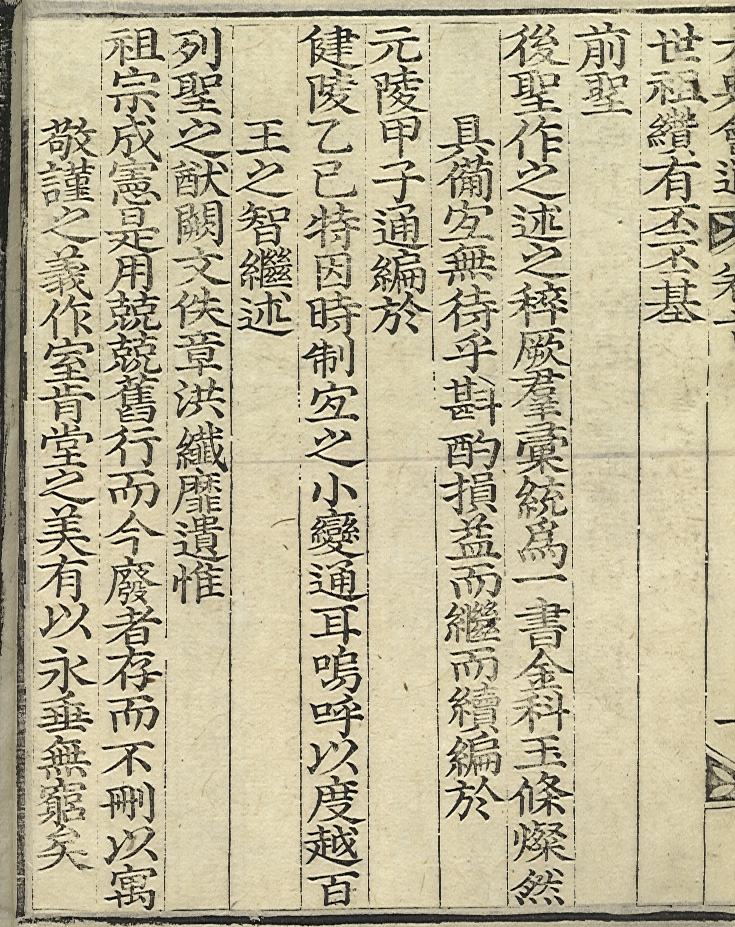 世祖纘有丕丕基
前聖
後聖作之述之稡厥羣彙統爲一書金科玉條燦然
具備宐無待乎斟酌損益而繼而續編於
元陵甲子通編於
健陵乙巳特因時制宐之小變通耳嗚呼以度越百
王之智繼述
列聖之猷闕文佚章洪纖靡遺惟
祖宗成憲是用兢兢舊行而今廢者存而不刪以寓
敬謹之義作室肯堂之美有以永垂無窮矣